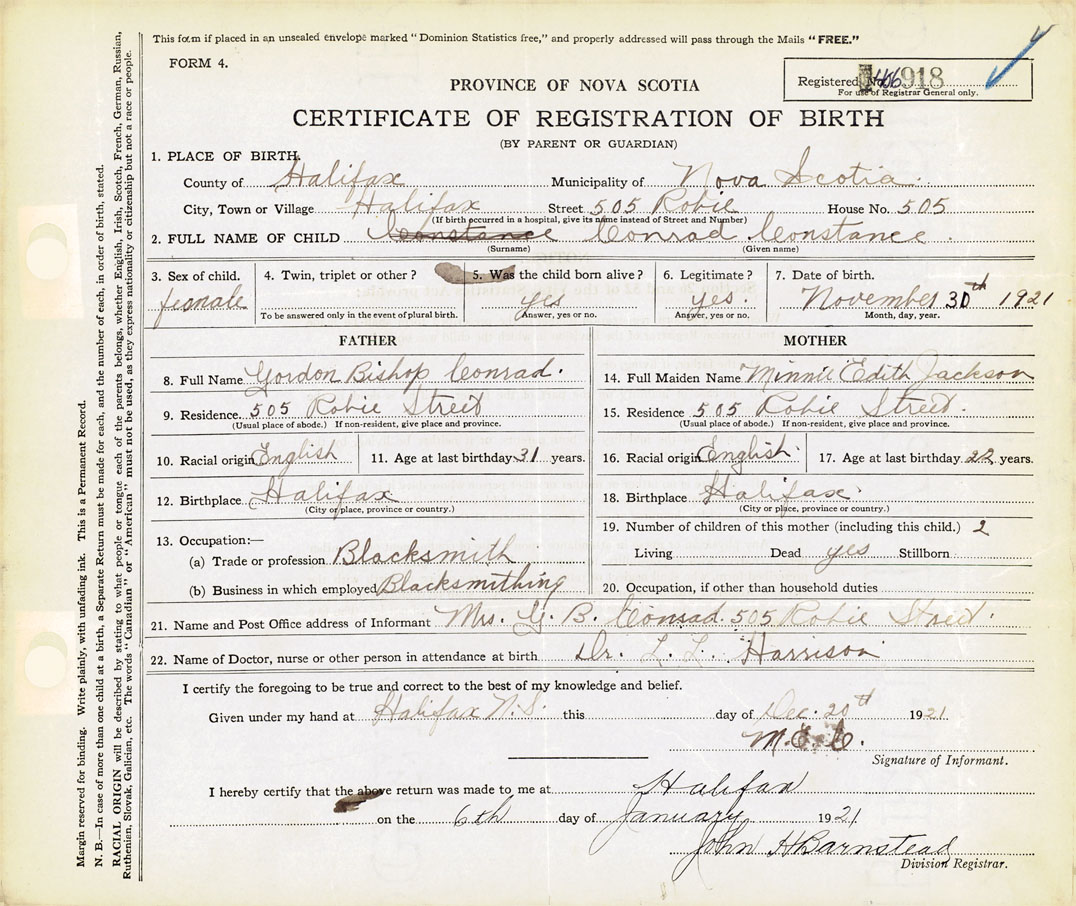 This form if placed in an unsealed envelope marked "Dominion Statistics free," and properly addressed will pass through the Mails "FREE."
FORM 4.
PROVINCE OF NOVA SCOTIA
Registered No. 918
For use of Registrar General only.
CERTIFICATE OF REGISTRATION OF BIRTH
(BY PARENT OR GUARDIAN)
1. PLACE OF BIRTH.
County of Halifax Municipality of Nova Scotia
City, Town or Village Halifax Street 505 Robie House No. 505
(If birth occurred in a hospital, give its name instead of Street and Number)
2. FULL NAME OF CHILD Constance Conrad Constance
(Surname) (Given name)
3. Sex of child. 4. Twin, triplet or other? 5. Was the child born alive? 6. Legitimate? 7. Date of birth.
female yes yes. November 30th 1921
To be answered only in the event of plural birth. Answer, yes or no. Answer, yes or no. Month, day, year.
FATHER
8. Full Name Gordon Bishop Conrad.
9. Residence. 505 Robie Street
(Usual place of abode.) If non-resident, give place and province.
10. Racial origin English 11. Age at last birthday 31 years.
12. Birthplace Halifax
(City or place, province or country.)
13. Occupation:—
(a) Trade or profession Blacksmith
(b) Business in which employed Blacksmithing
MOTHER
14. Full Maiden Name Minnie Edith Jackson
15. Residence 505 Robie Street.
(Usual place of abode.) If non-resident, give place and province.
16. Racial origin English 17. Age at last birthday 22 years.
18. Birthplace Halifax
(City or place, province or country.)
19. Number of children of this mother (including this child.) 2
Living Dead yes Stillborn
20. Occupation, if other than household duties
21. Name and Post Office address of Informant Mrs. G. B. Conrad. 505 Robie Street.
22. Name of Doctor, nurse or other person in attendance at birth Dr. L. L. Harrison
I certify the foregoing to be true and correct to the best of my knowledge and belief.
Given under my hand at Halifax N.S. this day of Dec. 20th 1921
M. E. C.
Signature of Informant.
I hereby certify that the above return was made to me at Halifax
on the 6th day of January 1921
John H Barnstead
Division Registrar.
Margin reserved for binding. Write plainly, with unfading ink. This is a Permanent Record.
N. B.—In case of more than one child at a birth, a Separate Return must be made for each, and the number of each, in order of birth, stated.
RACIAL ORIGIN will be described by stating to what people or tongue each of the parents belongs, whether English, Irish, Scotch, French, German, Russian,
Ruthenian, Slovak, Galician, etc. The words "Canadian" or "American" must not be used, as they express nationality or citizenship but not a race or people.